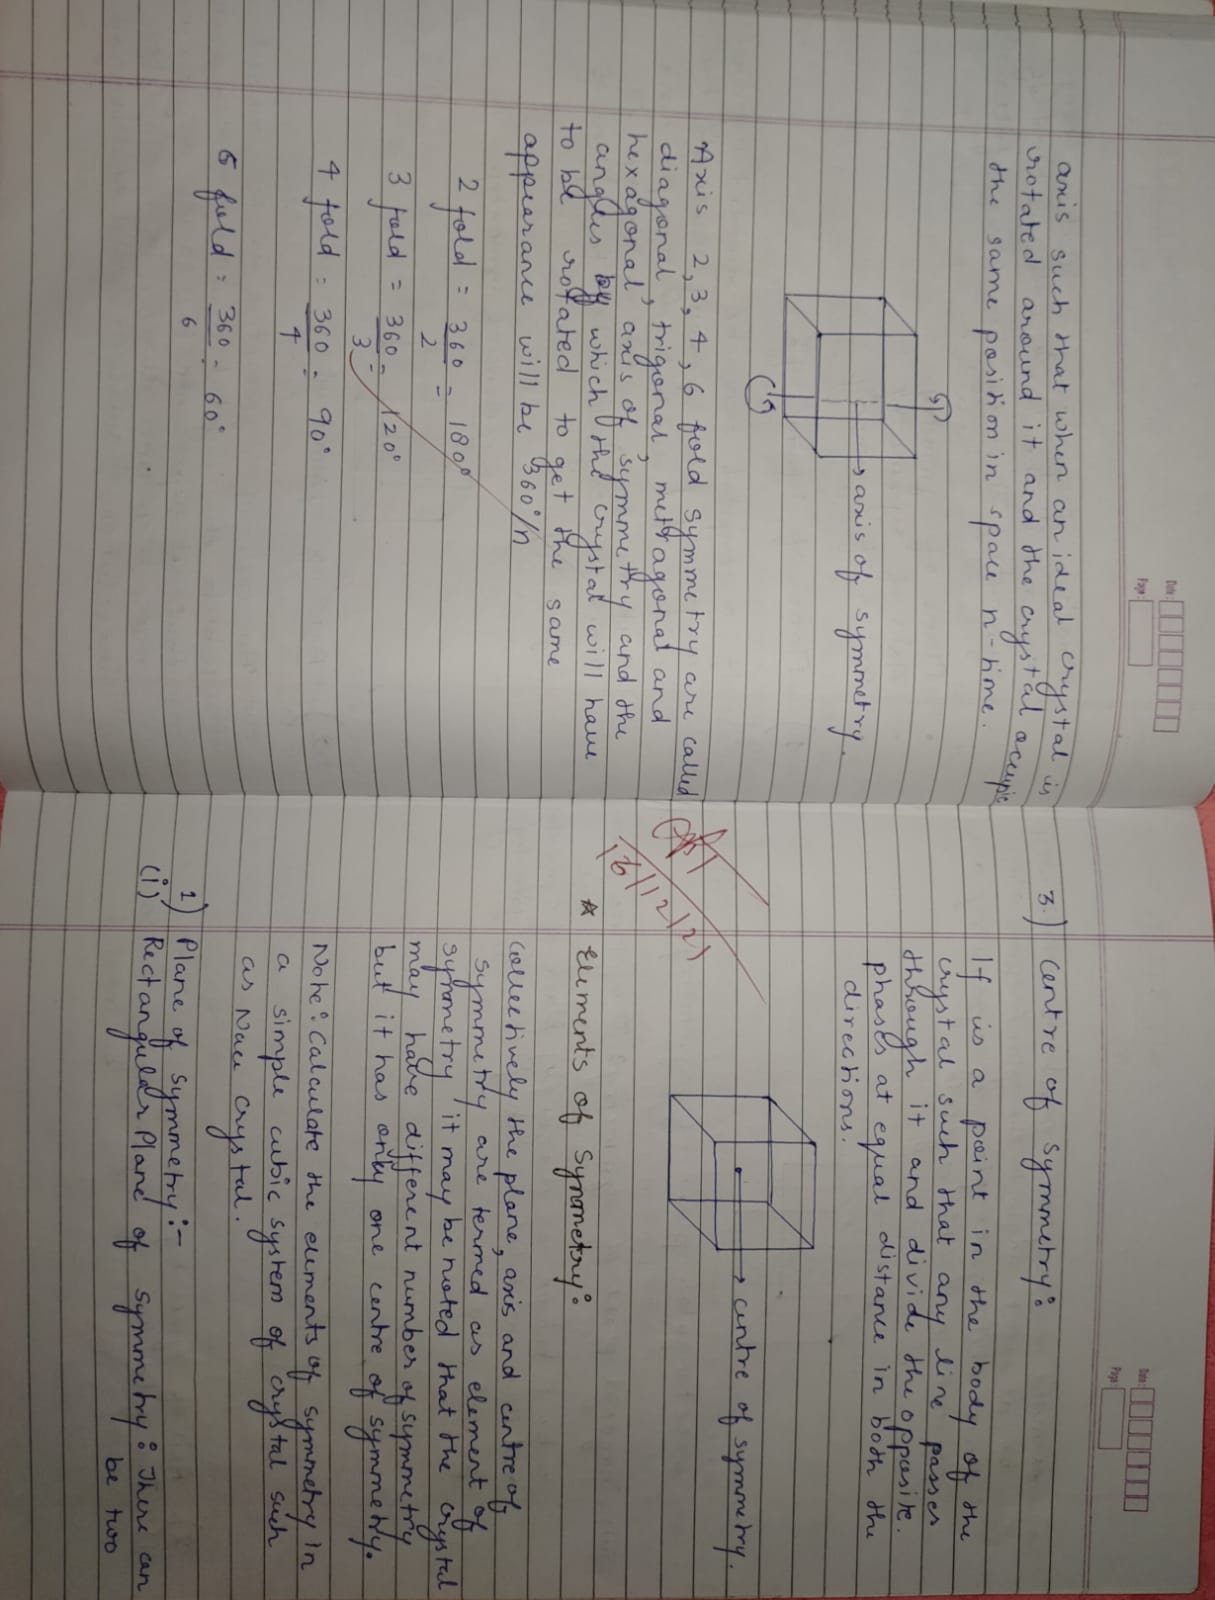 Date :
Page :
axis such that when an ideal crystal is
rotated around it and the crystal occupie
the same position in space n-time.
axis of symmetry.
Axis 2,3,4,6 fold symmetry are called
diagonal, trigonal, metragonal and
hexagonal, axis of symmetry and the
angles by which the crystal will have
to be rotated to get the same
appearance will be 360°/n
2 fold = 360/2 = 180°
3 fold = 360/3 = 120°
4 fold = 360/4 = 90°
6 fold = 360/6 = 60°
Date :
Page :
3.) Centre of Symmetry:
If is a point in the body of the
crystal such that any line passes
through it and divide the opposite.
phases at equal distance in both the
directions.
centre of symmetry.
16/12/21
* Elements of Symmetry:
Collectively the plane, axis and centre of
symmetry are termed as element of
symmetry it may be noted that the crystal
may have different number of symmetry
but it has only one centre of symmetry.
Note: Calculate the elements of symmetry in
a simple cubic system of crystal such
as Nacl crystal.
1) Plane of Symmetry:-
(i) Rectangular Plane of Symmetry: There can
be two